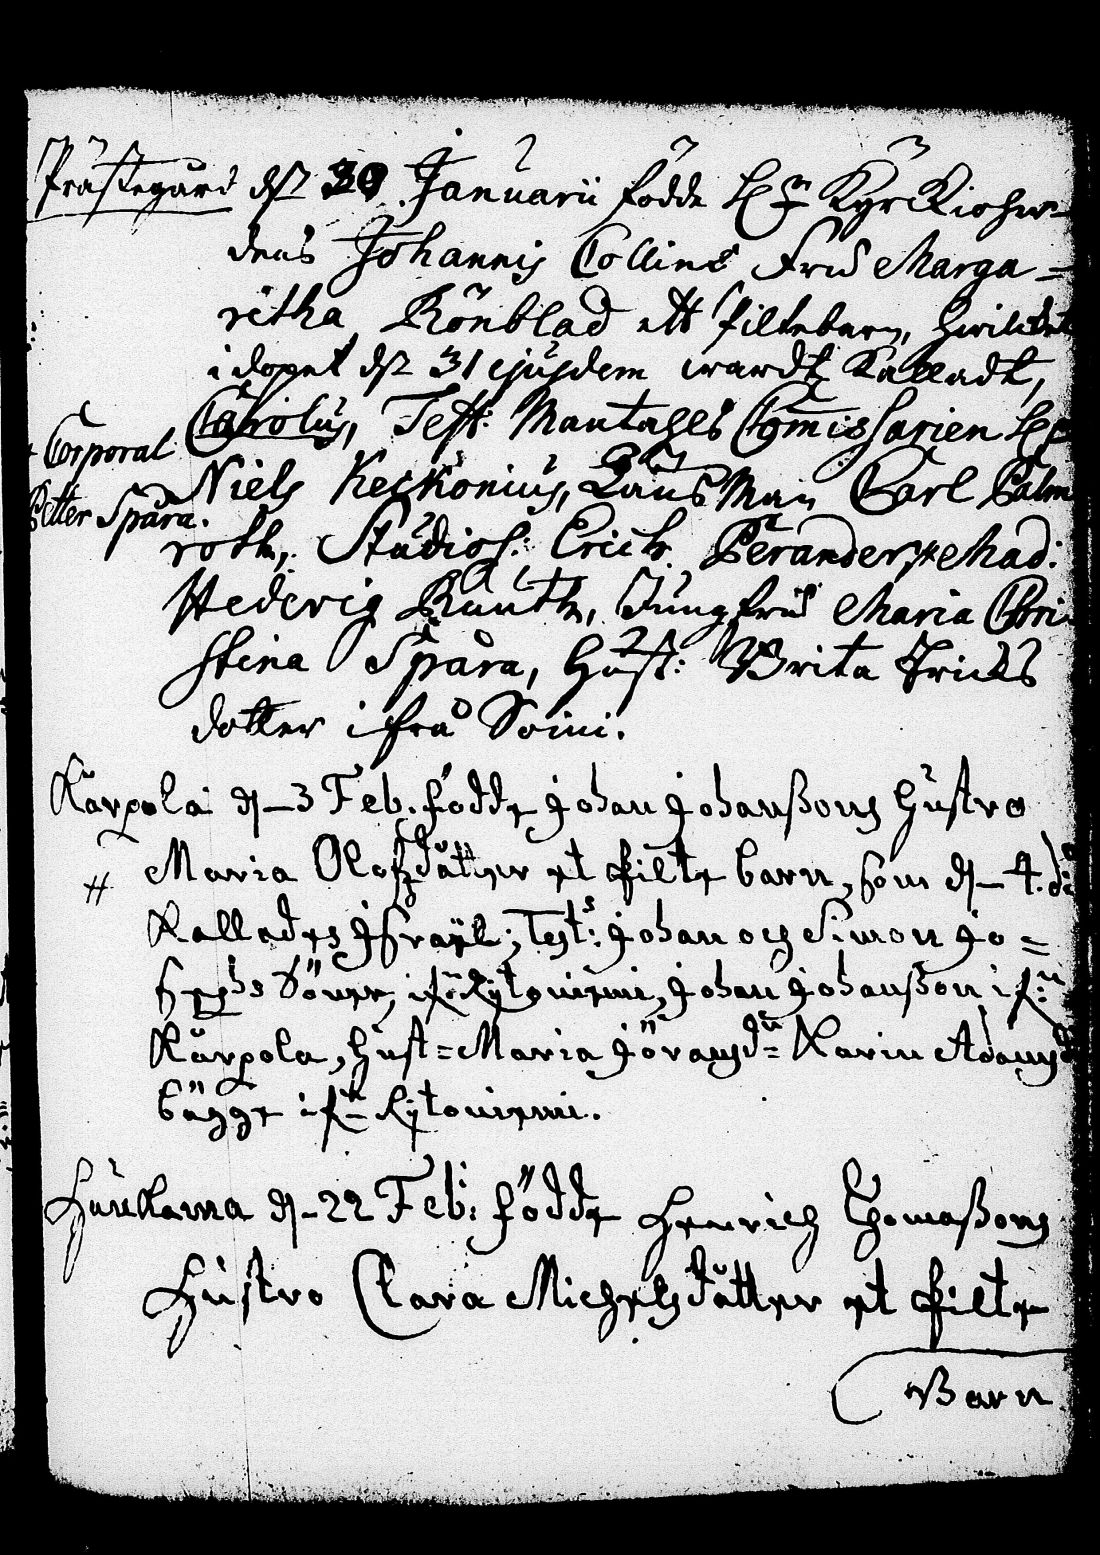 Prästegård d. 30 Januarii födde H:r Kyrckioher-
dens Johannis Collins Fru Marga=
retha Rönblad ett Piltebarn, hwilcket
i dopet d. 31 ejusdem wardt Kalladt,
Carolus, Test: Mantahls Com̄issarien H:r
+ Corporal
Petter Spåra.
Niels Keckonius, Länsman Carl Palm
roth, Studios: Erich Perander, Mad:
Hedevig Ruuth, Jungfru Maria Chri
stina Spåra, Hust: Brita Erichs
dotter ifrå Soini.
Karpola d. 3 Feb. födde Johan Johanßons Hustro
Maria Olofzdåtter et pilte barn, som d. 4. di
#
Kallades Israel; Test:s Johan och Simon Jo=
sephs Söner, ifr. Kytöniemi, Johan Johanßon ifr:
Karpola, Hust= Maria Göransd:r Karin Adamsd
bägge ifr. Kytöniemi.
d. 22 Feb: födde Henrich Thomaßons
Hustro Clara Michelsdåtter et pilte
Barn